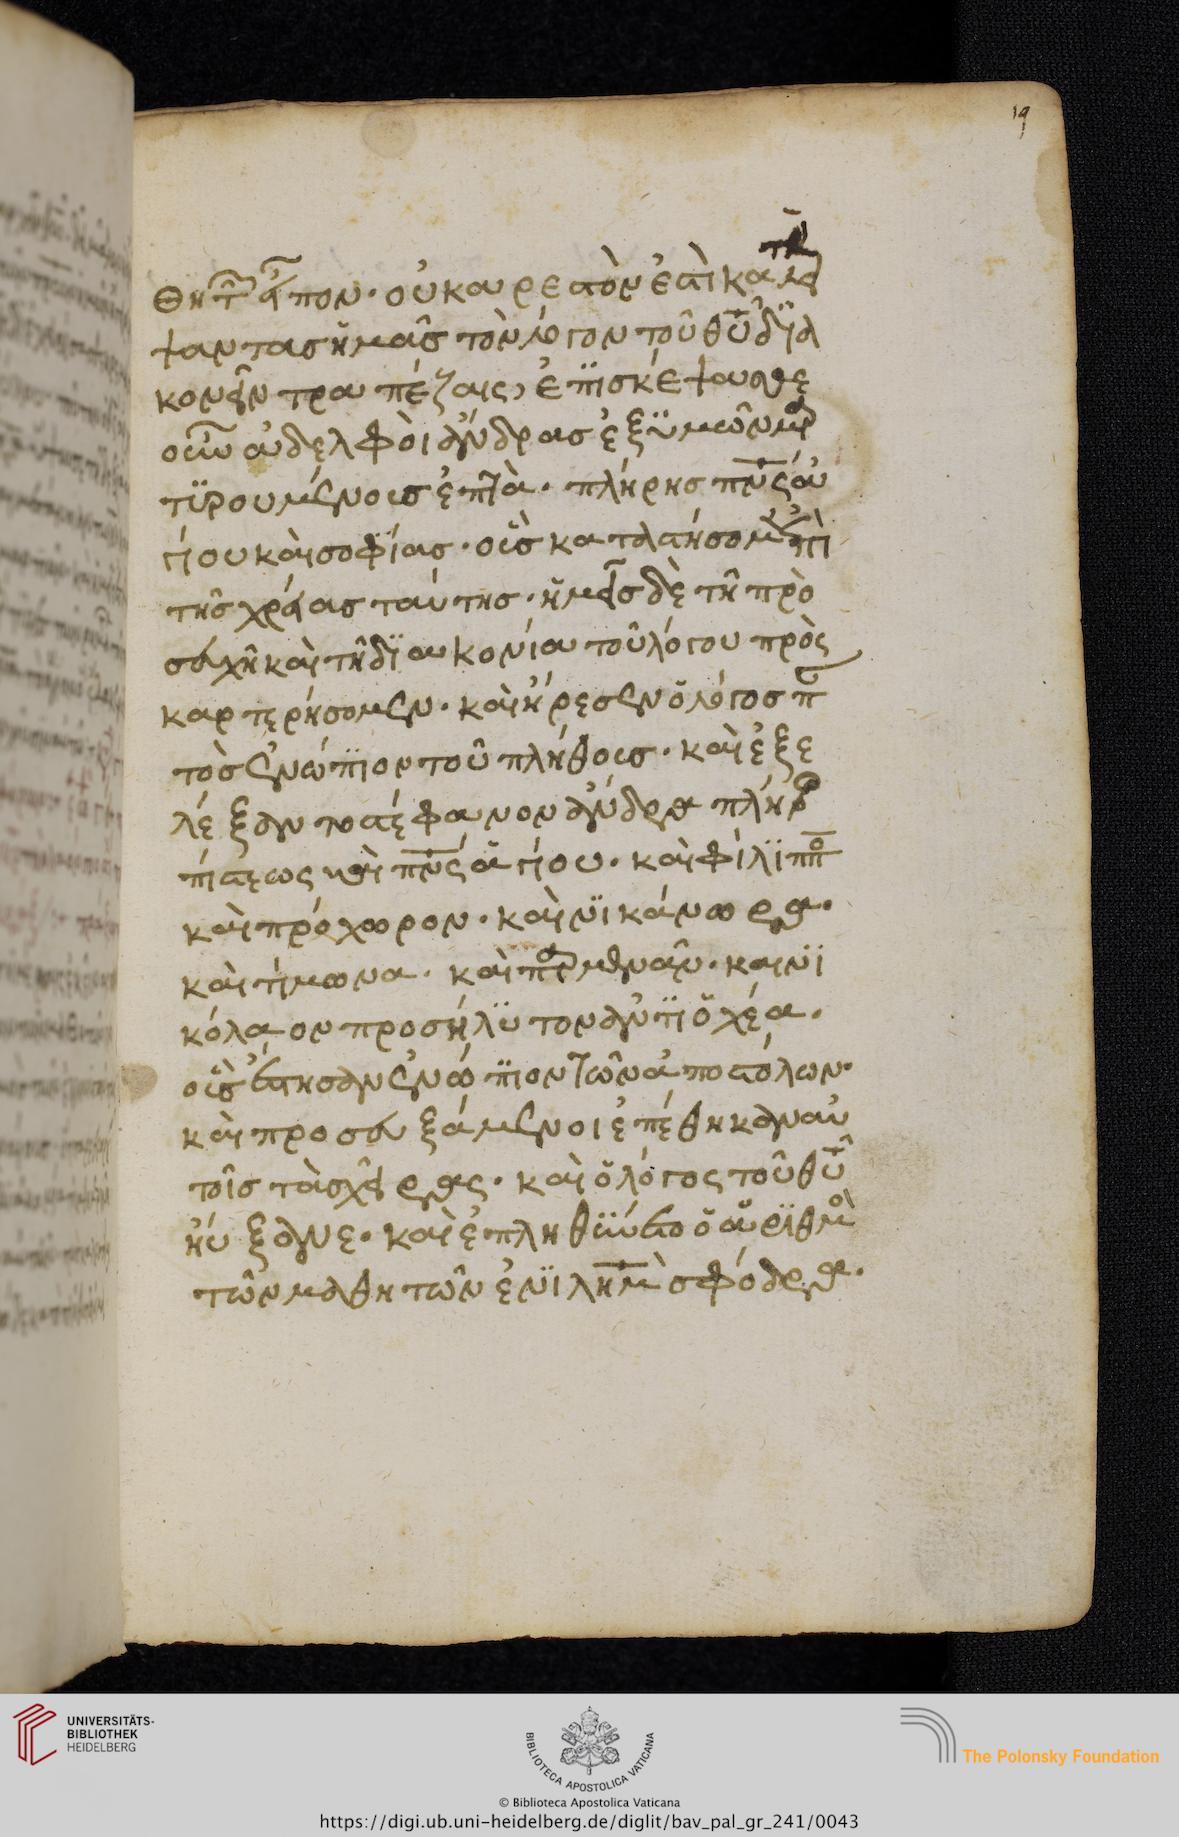 19
θητῶν εἶπον· οὐκ ἀρεστόν ἐστὶ κατα
λεί
ψαντας ἡμᾶς τὸν λόγον τοῦ θῦ δϊα
κονεῖν τραπέζαις, ἐπϊσκέψασθε
οὖν ἀδελφοὶ ἄνδρας ἐξ ϋμῶν μαρ
τϋρουμένους ἑπτὰ· πλήρης πνς ἁ
γίου καὶ σοφίας· οἷς καταστήσομεν ἐπὶ
τῆς χρείας ταύτης· ἡμεῖς δὲ τῆ προ
σευχῆ καὶ τῆ δϊακονία τοῦ λόγου προς
καρτερήσομεν· καὶ ἤρεσεν ὁ λόγος οὗ
τος ἐνώπϊον τοῦ πλήθους· καὶ ἐξε
λέξαντο στέφανον ἄνδρα πλήρη
πίστεως καὶ πνς ἁγίου· καὶ φίλϊππον
καὶ πρόχωρον· καὶ νϊκάνωρα·
καὶ τίμωνα· καὶ παρμενᾶν· και νϊ
κόλαον προσήλϋτον ἀντϊοχέα·
οἷς ἔστησαν ἐνώπϊον τῶν ἀποστόλων·
καὶ προσευξάμενοι ἐπέθηκαν αὐ
τοῖς τὰς χεῖρας· καὶ ὁ λόγος τοῦ θῦ
ηὔξανε· καὶ ἐπληθϋνετο ὁ ἀρϊθμὸς
τῶν μαθητῶν ἐν ϊλημ σφόδρα·
UNIVERSITÄTS-
BIBLIOTHEK
HEIDELBERG
BIBLIOTECA APOSTOLICA VATICANA
The Polonsky Foundation
© Biblioteca Apostolica Vaticana
https://digi.ub.uni-heidelberg.de/diglit/bav_pal_gr_241/0043